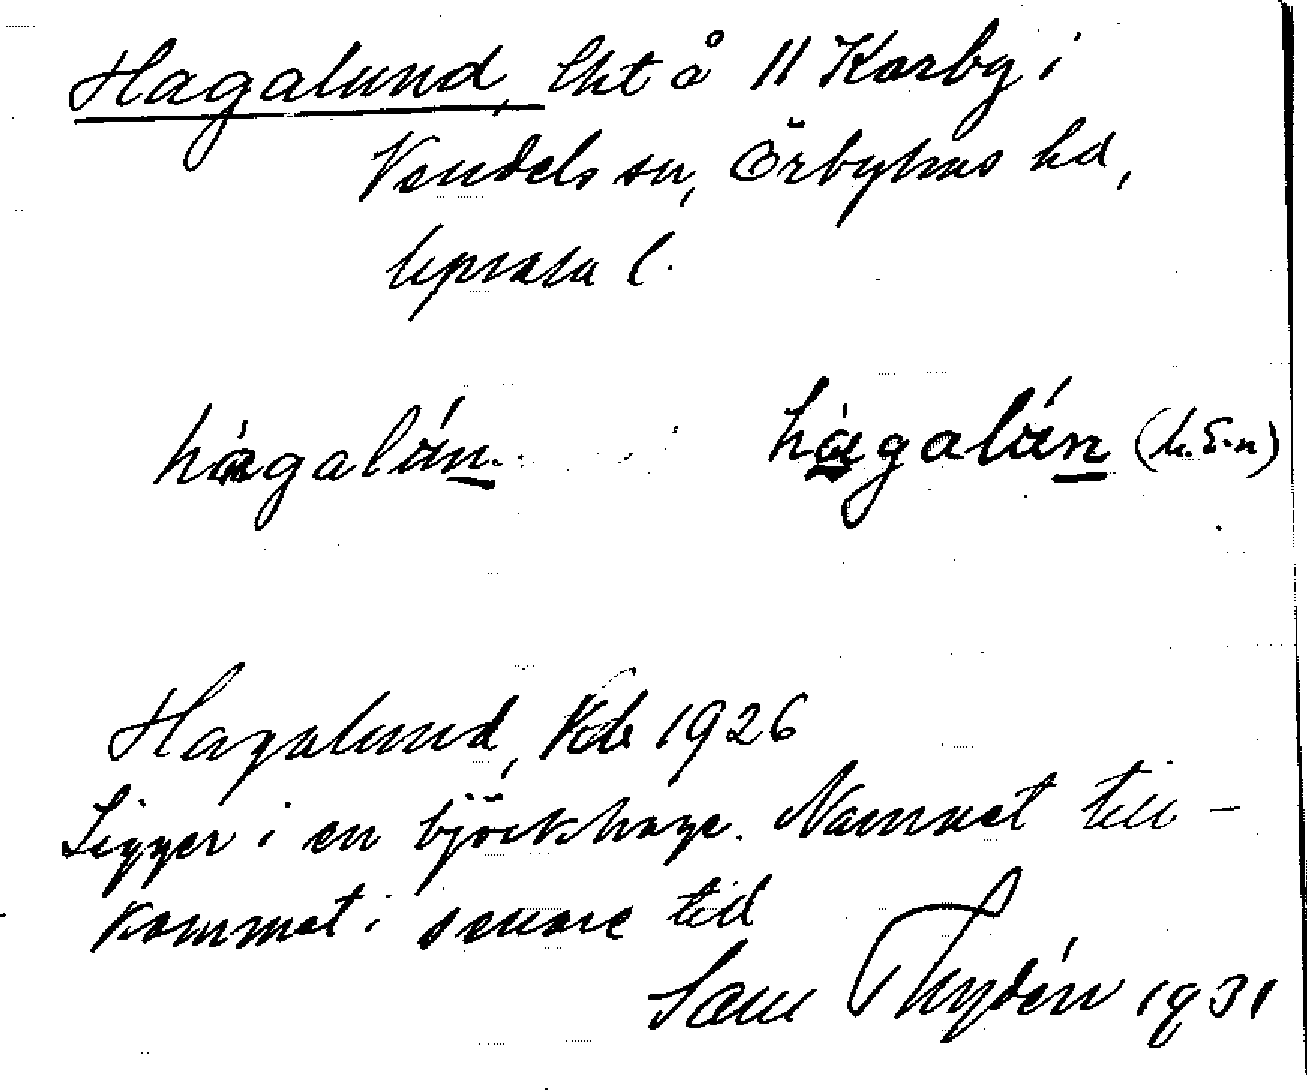 Hagalund, lht å 11 Karby i
Vendels sn, Örbyhus hd,
Uppsala l.
hàgalún hàgalún
Hagalund, Kb 1926
Ligger i en björkhage. Namnet till-
kommet i senare tid
Sam Thydén 1931